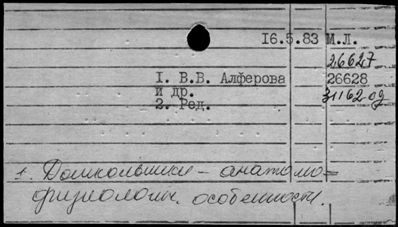 16.5.83 М.Л.
26627
I. В.В. Алферова 26628
и др. 31162 од
2. Ред.
1. Дошкольники – анатомо-
физиологич. особенности.